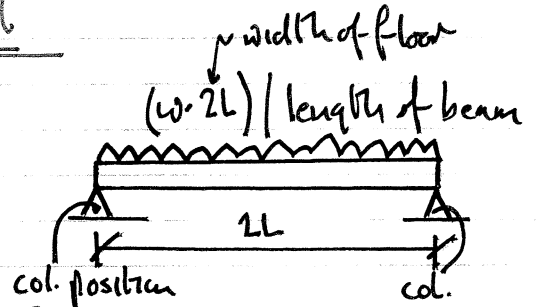 width of floor
(w. 2L) | length of beam
2L
col. position
col.